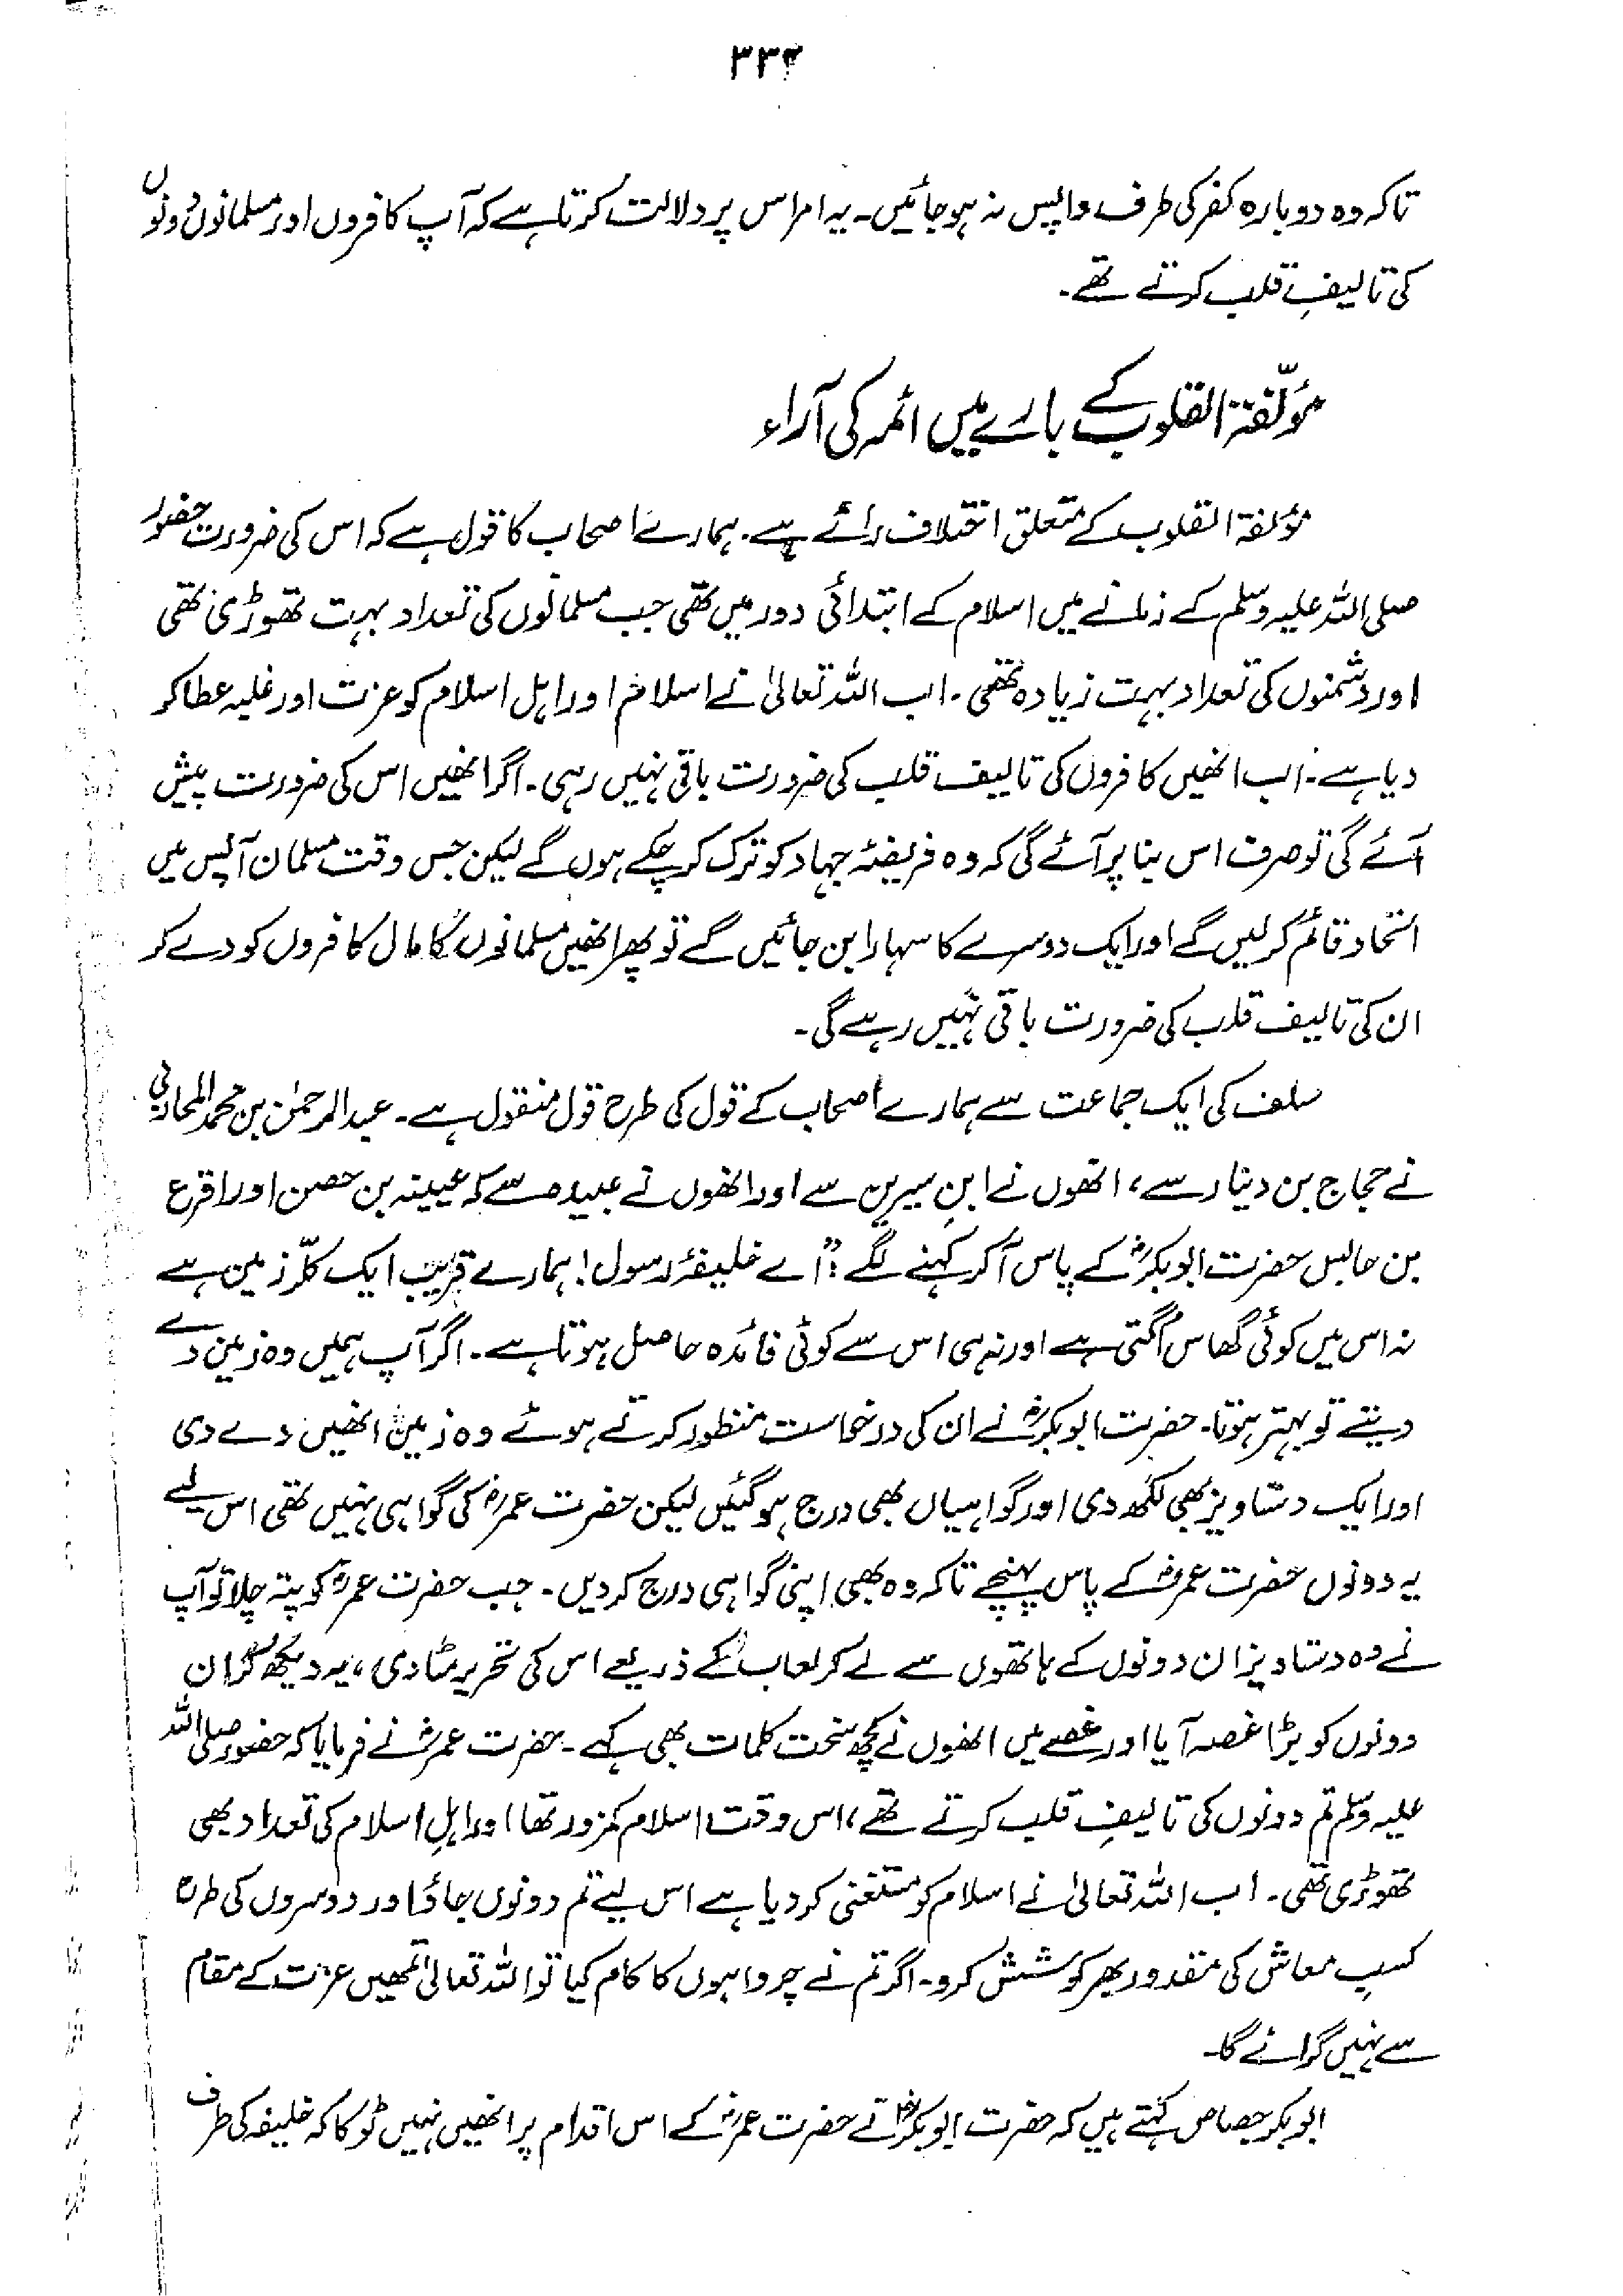 ۳۳۴
تاکہ وہ دوبارہ کفر کی طرف واپس نہ ہو جائیں۔ یہ امر اس پر دلالت کرتا ہے کہ آپ کافروں اور مسلمانوں دونوں
کی تالیفِ قلب کرتے تھے۔
مؤلّفۃ القلوب کے بارے میں ائمہ کی آراء
مؤلفۃ القلوب کے متعلق اختلاف رائے ہے۔ ہمارے اصحاب کا قول ہے کہ اس کی ضرورت حضور
صلی اللہ علیہ وسلم کے زمانے میں اسلام کے ابتدائی دور میں تھی جب مسلمانوں کی تعداد بہت تھوڑی تھی
اور دشمنوں کی تعداد بہت زیادہ تھی۔ اب اللہ تعالیٰ نے اسلام اور اہل اسلام کو عزت اور غلبہ عطا کر
دیا ہے۔ اب انھیں کافروں کی تالیف قلب کی ضرورت باقی نہیں رہی۔ اگر انھیں اس کی ضرورت پیش
آئے گی تو صرف اس بنا پر آئے گی کہ وہ فریضۂ جہاد کو ترک کر چکے ہوں گے لیکن جس وقت مسلمان آپس میں
اتحاد قائم کر لیں گے اور ایک دوسرے کا سہارا بن جائیں گے تو پھر انھیں مسلمانوں کا مال کافروں کو دے کر
ان کی تالیف قلب کی ضرورت باقی نہیں رہے گی۔
سلف کی ایک جماعت سے ہمارے اصحاب کے قول کی طرح قول منقول ہے۔ عبدالرحمٰن بن محمد المحاربی
نے حجاج بن دینار سے، انھوں نے ابنِ سیرین سے اور انھوں نے عبیدہ سے کہ عیینہ بن حصن اور اقرع
بن حابس حضرت ابوبکرؓ کے پاس آ کر کہنے لگے: "اے خلیفۂ رسول! ہمارے قریب ایک کلّر زمین ہے
نہ اس میں کوئی گھاس اگتی ہے اور نہ ہی اس سے کوئی فائدہ حاصل ہوتا ہے۔ اگر آپ ہمیں وہ زمین دے
دیتے تو بہتر ہوتا۔ حضرت ابوبکرؓ نے ان کی درخواست منظور کرتے ہوئے وہ زمین انھیں دے دی
اور ایک دستاویز بھی لکھ دی اور گواہیاں بھی درج ہو گئیں لیکن حضرت عمرؓ کی گواہی نہیں تھی اس لیے
یہ دونوں حضرت عمرؓ کے پاس پہنچے تاکہ وہ بھی اپنی گواہی درج کر دیں۔ جب حضرت عمرؓ کو پتہ چلا تو آپ
نے وہ دستاویز ان دونوں کے ہاتھوں سے لے کر لعاب کے ذریعے اس کی تحریر مٹا دی، یہ دیکھ کر ان
دونوں کو بڑا غصہ آیا اور غصے میں انھوں نے کچھ سخت کلمات بھی کہے۔ حضرت عمرؓ نے فرمایا کہ حضور صلی اللہ
علیہ وسلم تم دونوں کی تالیفِ قلب کرتے تھے، اس وقت اسلام کمزور تھا اور اہلِ اسلام کی تعداد بھی
تھوڑی تھی۔ اب اللہ تعالیٰ نے اسلام کو مستغنی کر دیا ہے اس لیے تم دونوں جاؤ اور دوسروں کی طرح
کسبِ معاش کی مقدور بھر کوشش کرو۔ اگر تم نے چرواہوں کا کام کیا تو اللہ تعالیٰ تمھیں عزت کے مقام
سے نہیں گرائے گا۔
ابوبکر جصاص کہتے ہیں کہ حضرت ابوبکرؓ نے حضرت عمرؓ کے اس اقدام پر انھیں نہیں ٹوکا کہ خلیفہ کی طرف